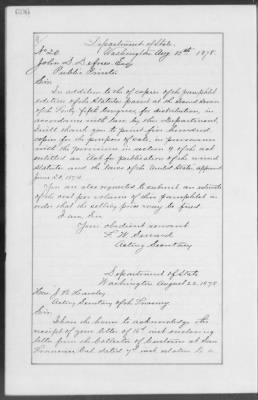 Department of State,
No 20. Washington Aug 15th 1878.
John D. Defrees Esq
Public Printer
Sir
In addition to the copies of the pamphlet
edition of the Statutes passed at the Second Session
of the Forty fifth Congress, for distribution, in
accordance with law by this Department,
I will thank you to print five hundred
copies for the purpose of sale, in pursuance
with the provisions in section 9 of the act
entitled an Act for publication of the revised
Statutes and the laws of the United States approved
June 20, 1874.
You are also requested to submit an estimate
of the cost per volume of this pamphlet in
order that the selling price may be fixed.
I am, Sir
Your obedient servant
F. W. Seward
Acting Secretary
Department of State
Washington August 22, 1878
Hon. J. B. Hawley
Acting Secretary of the Treasury
Sir,
I have the honor to acknowledge the
receipt of your letter of 16th inst enclosing
letter from the collector of Customs at San
Francisco Cal dated 7th inst relative to a